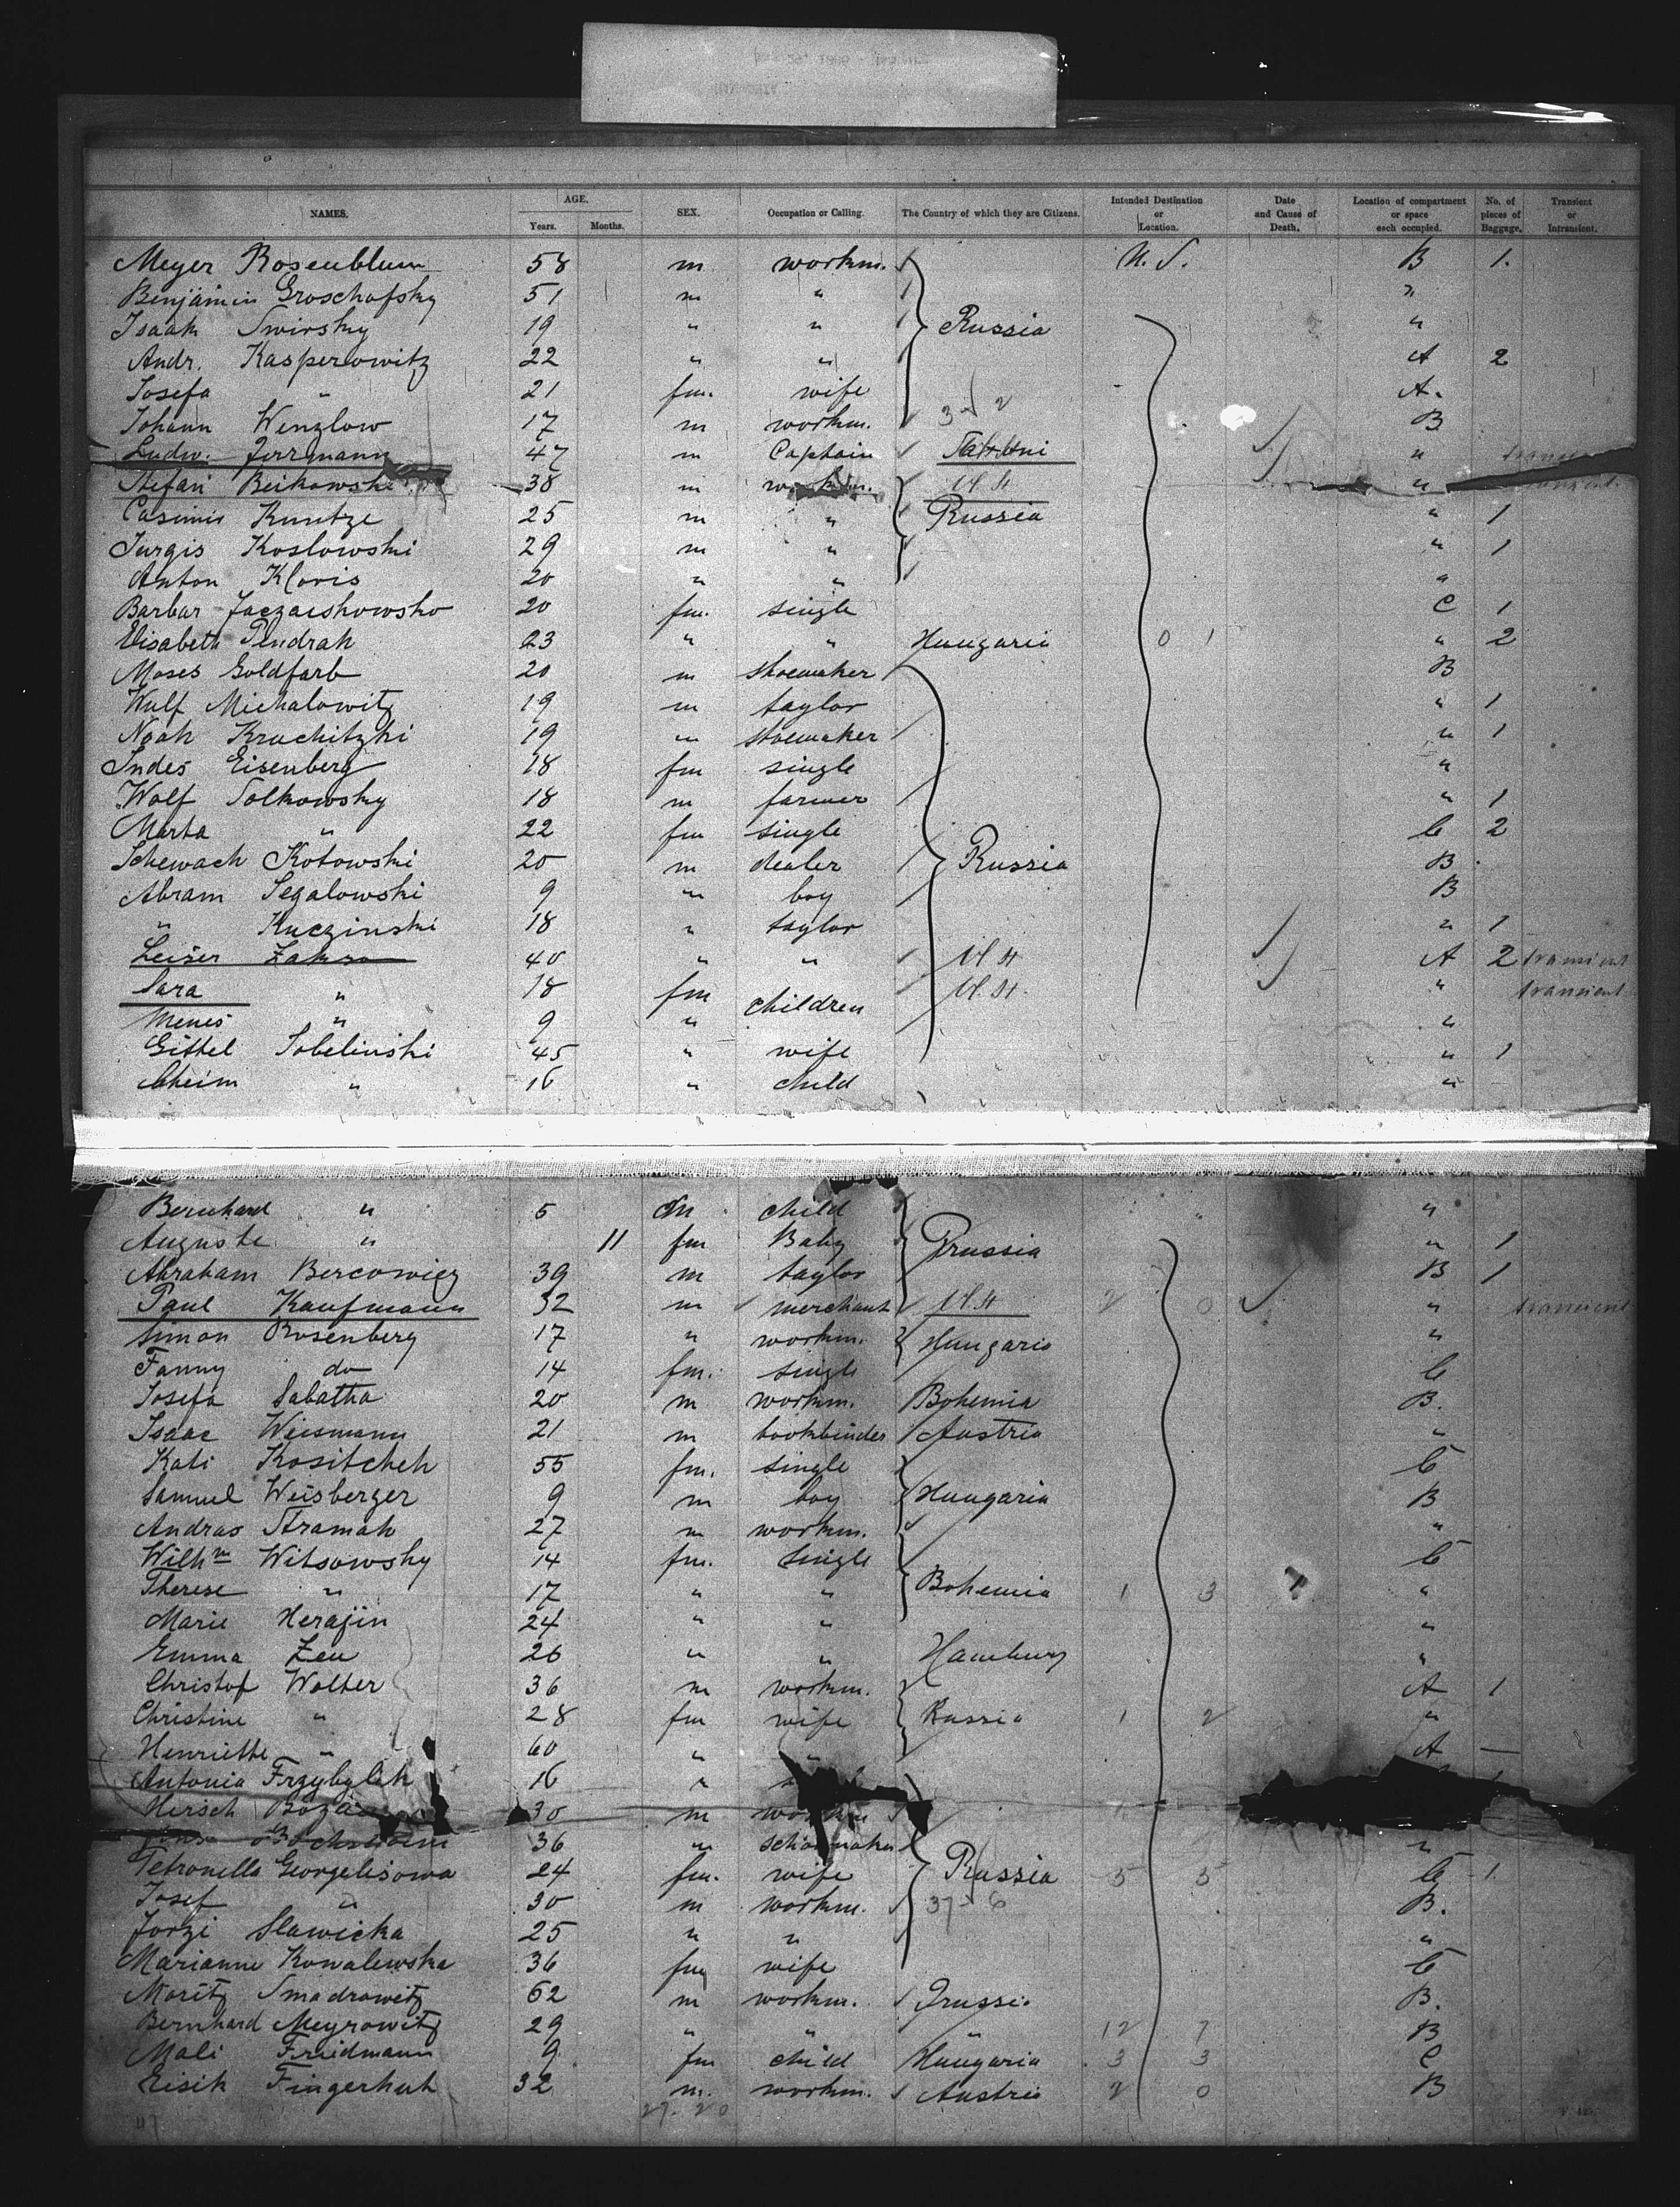 NAMES. AGE. Years. Months. SEX. Occupation or Calling. The Country of which they are Citizens. Intended Destination or Location. Date and Cause of Death. Location of compartment or space each occupied. No. of pieces of Baggage. Transient or Intransient.
Meyer Rosenblum 58 m workm. N. S. B 1.
Benjamin Groschofsky 51 m " "
Isaak Swirsky 19 " " Russia "
Andr. Kasperowitz 22 " " A 2
Josefa " 21 fm. wife A.
Johann Wenzlow 17 m workm. B
Ludw. Jerrmann 47 m Captain "
Stefan Beikowski 38 m U. St "
Casimir Kuntze 25 m " Russia " 1
Jurgis Koslowski 29 m " " 1
Anton Kloris 20 " " "
Barbar 20 fm. single C 1
Elisabeth Pendrak 23 " " Hungaria 0 1 " 2
Moses Goldfarb 20 m shoemaker B
Wulf Michalowitz 19 m taylor " 1
Noah Kruchitzki 19 " shoemaker " 1
Indes Eisenberg 18 fm single "
Wolf Solkowsky 18 m farmer " 1
Marta " 22 fm single C 2
Schewach Kotowski 20 m dealer Russia B
Abram Segalowski 9 " boy B
" Kuczinski 18 " taylor " 1
Leiser 40 " " U. St A 2 transient
Sara " 18 fm children U. St. " transient
Menes " 9 " "
Gittel Sobelinski 45 " wife " 1
Cheim " 16 " child "
Bernhard " 5 m child "
Auguste " 11 fm Baby Prussia " 1
Abraham Bercowicz 39 m taylor B 1
Paul Kaufmann 32 m merchant U. St 2 0 " transient
Simon Rosenberg 17 " workm. Hungaria "
Fanny do 14 fm. single C
Josefa Sabatha 20 m workm. Bohemia B.
Isaac Weismann 21 m bookbinder Austria "
Kati Kositcheh 55 fm. single C
Samuel Weisberger 9 m boy Hungaria B
Andras Stramah 27 m workm. "
Wilhm Witsowsky 14 fm. single C
Therese " 17 " " Bohemia 1 3 "
Marie Herajin 24 " " "
Emma Zeu 26 " " Hamburg "
Christof Wolter 36 m workm. A 1
Christine " 28 fm wife Russia 1 2 "
Henriette " 60 " " A —
Antonia Frzybylek 16 "
Hirsch 30 m workm
36 " "
Petronella Georgelisowa 24 fm. wife Russia 5 5 C 1
Josef " 30 m workm. B.
Jorzi Slawicka 25 " " "
Marianne Kowalewska 36 fm wife C
Moritz Smadrowitz 62 m workm. Prussia B.
Bernhard Meyrowitz 29 " " " 12 7 B
Mali Friedmann 9 fm child Hungaria 3 3 C
Eisik Fingerhut 32 m. workm. Austria 2 0 B
27. 20